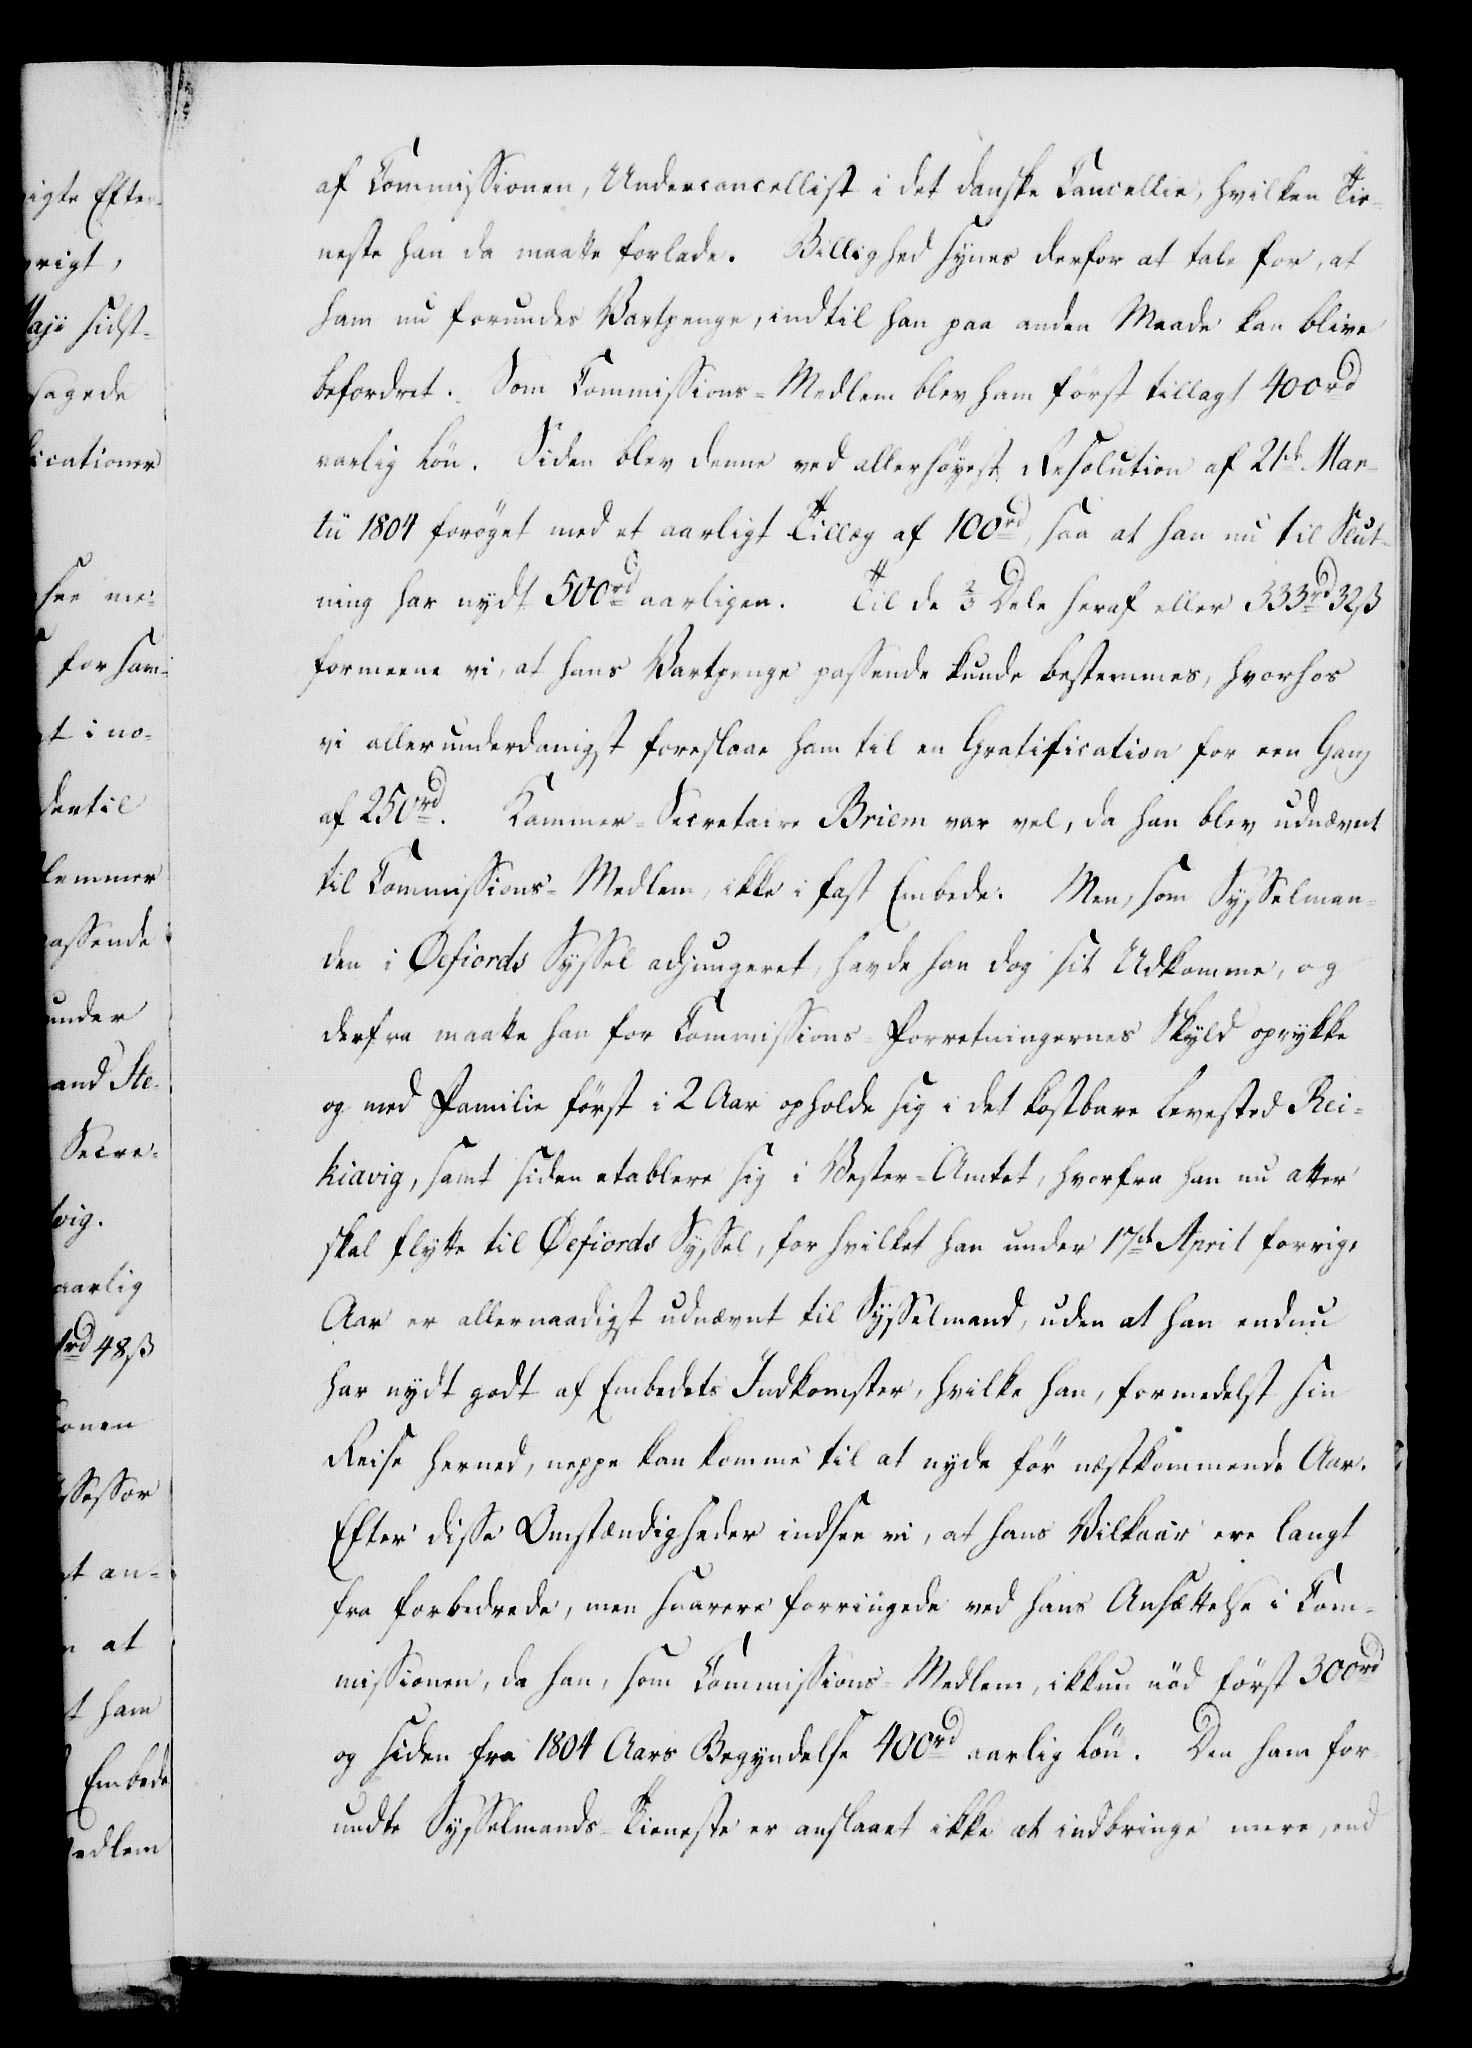 igte Efter-
vrigt,
Maji sidst-
sagede
licationer
see me-
for ham-
t i no-
dertil
lemmer
passende
under
and Ste-
Secre-
vig.
aarlig
rd 48ß
ionen
ssessor
t an-
n at
t ham
Embede
edlem
af Commissionen, Undercancellist i det danske Cancellie, hvilken Tie-
neste han da maatte forlade. Billighed synes derfor at tale for, at
ham nu forundes Vartpenge, indtil han paa anden Maade kan blive
befordret. Som Commissions-Medlem blev ham först tillagt 400rd
aarlig Lön. Siden blev denne ved allerhöyest Resolution af 21de Mar-
tii 1804 foröget med et aarligt Tillæg af 100rd, saa at han nu til Slut-
ning har nydt 500rd aarligen. Til de 2/3 Dele heraf eller 333rd 32ß
formeene vi, at hans Vartpenge passende kunde bestemmes, hvorhos
vi allerunderdanigst foreslaae ham til en Gratification for een Gang
af 250rd. Kammer-Secretaire Briem var vel, da han blev udnævnt
til Commissions-Medlem, ikke i fast Embede. Men, som Sysselman-
den i Øefiords Syssel adjungeret, havde han dog sit Udkomme, og
derfra maatte han for Commissions-Forretningernes Skyld oprykke
og med Familie först i 2 Aar opholde sig i det kostbare Levested Rei-
kiavig, samt siden etablere sig i Vester-Amtet, hvorfra han nu atter
skal flytte til Øefiords Syssel, for hvilket han under 17de April forrige
Aar er allernaadigst udnævnt til Sysselmand, uden at han endnu
har nydt godt af Embedets Indkomster, hvilke han, formedelst sin
Reise herned, neppe kan komme til at nyde för næstkommende Aar.
Efter disse Omstændigheder indsee vi, at hans Vilkaar ere langt
fra forbedrede, men snarere forringede ved hans Ansættelse i Com-
missionen, da han, som Commissions-Medlem, ikkun nöd först 300rd
og siden fra 1804 Aars Begyndelse 400rd aarlig Lön. Den ham for-
undte Sysselmands-Tieneste er anslaaet ikke at indbringe mere, end